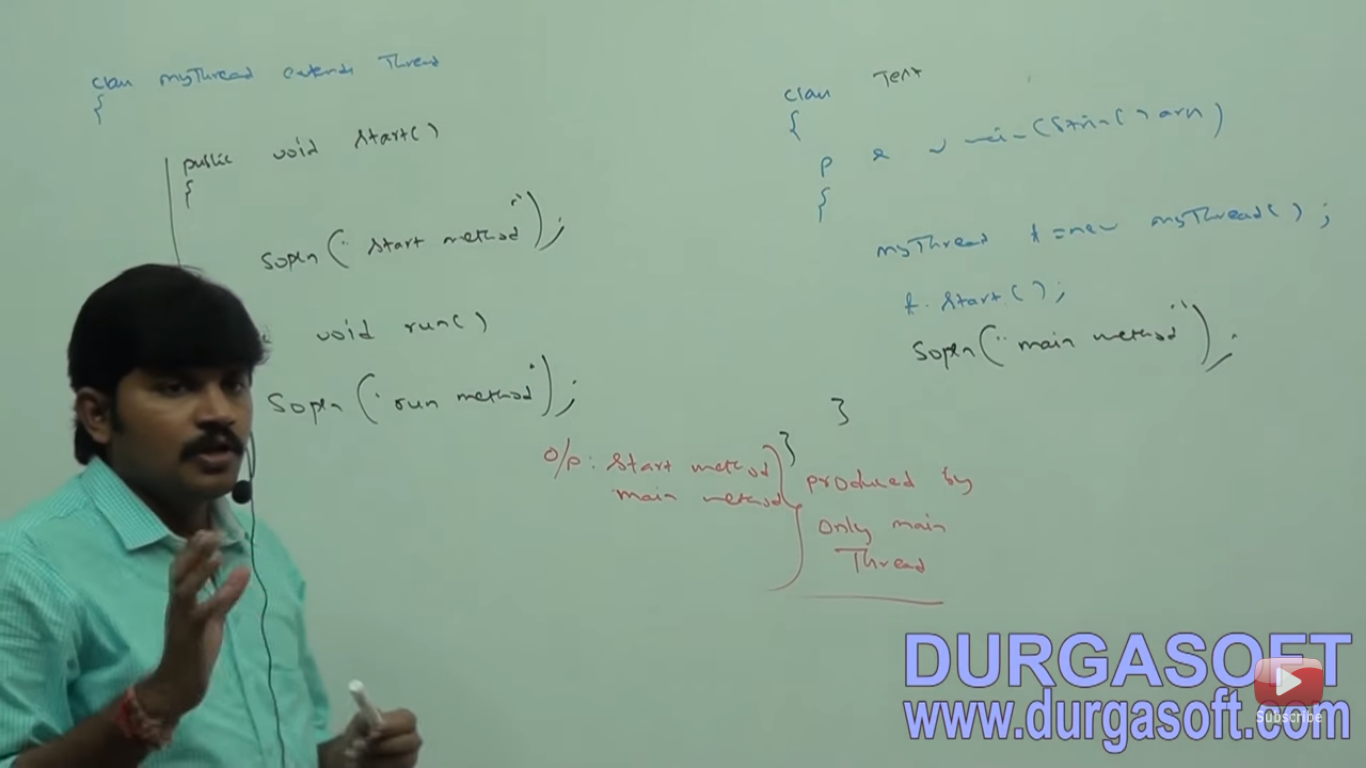 class myThread extends Thread
{
public void start()
{
Sopln("start method");
void run()
Sopln("run method");
class Test
{
p s v main(String[] args)
{
myThread t=new myThread();
t.start();
Sopln("main method");
}
}
O/P: start method
main method
produced by
only main
Thread
DURGASOFT
www.durgasoft.com
Subscribe